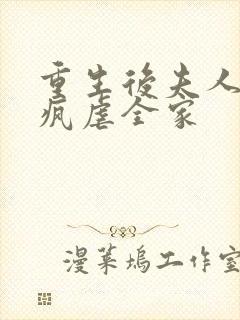 重生後夫人
瘋虐全家
漫葉塢工作室